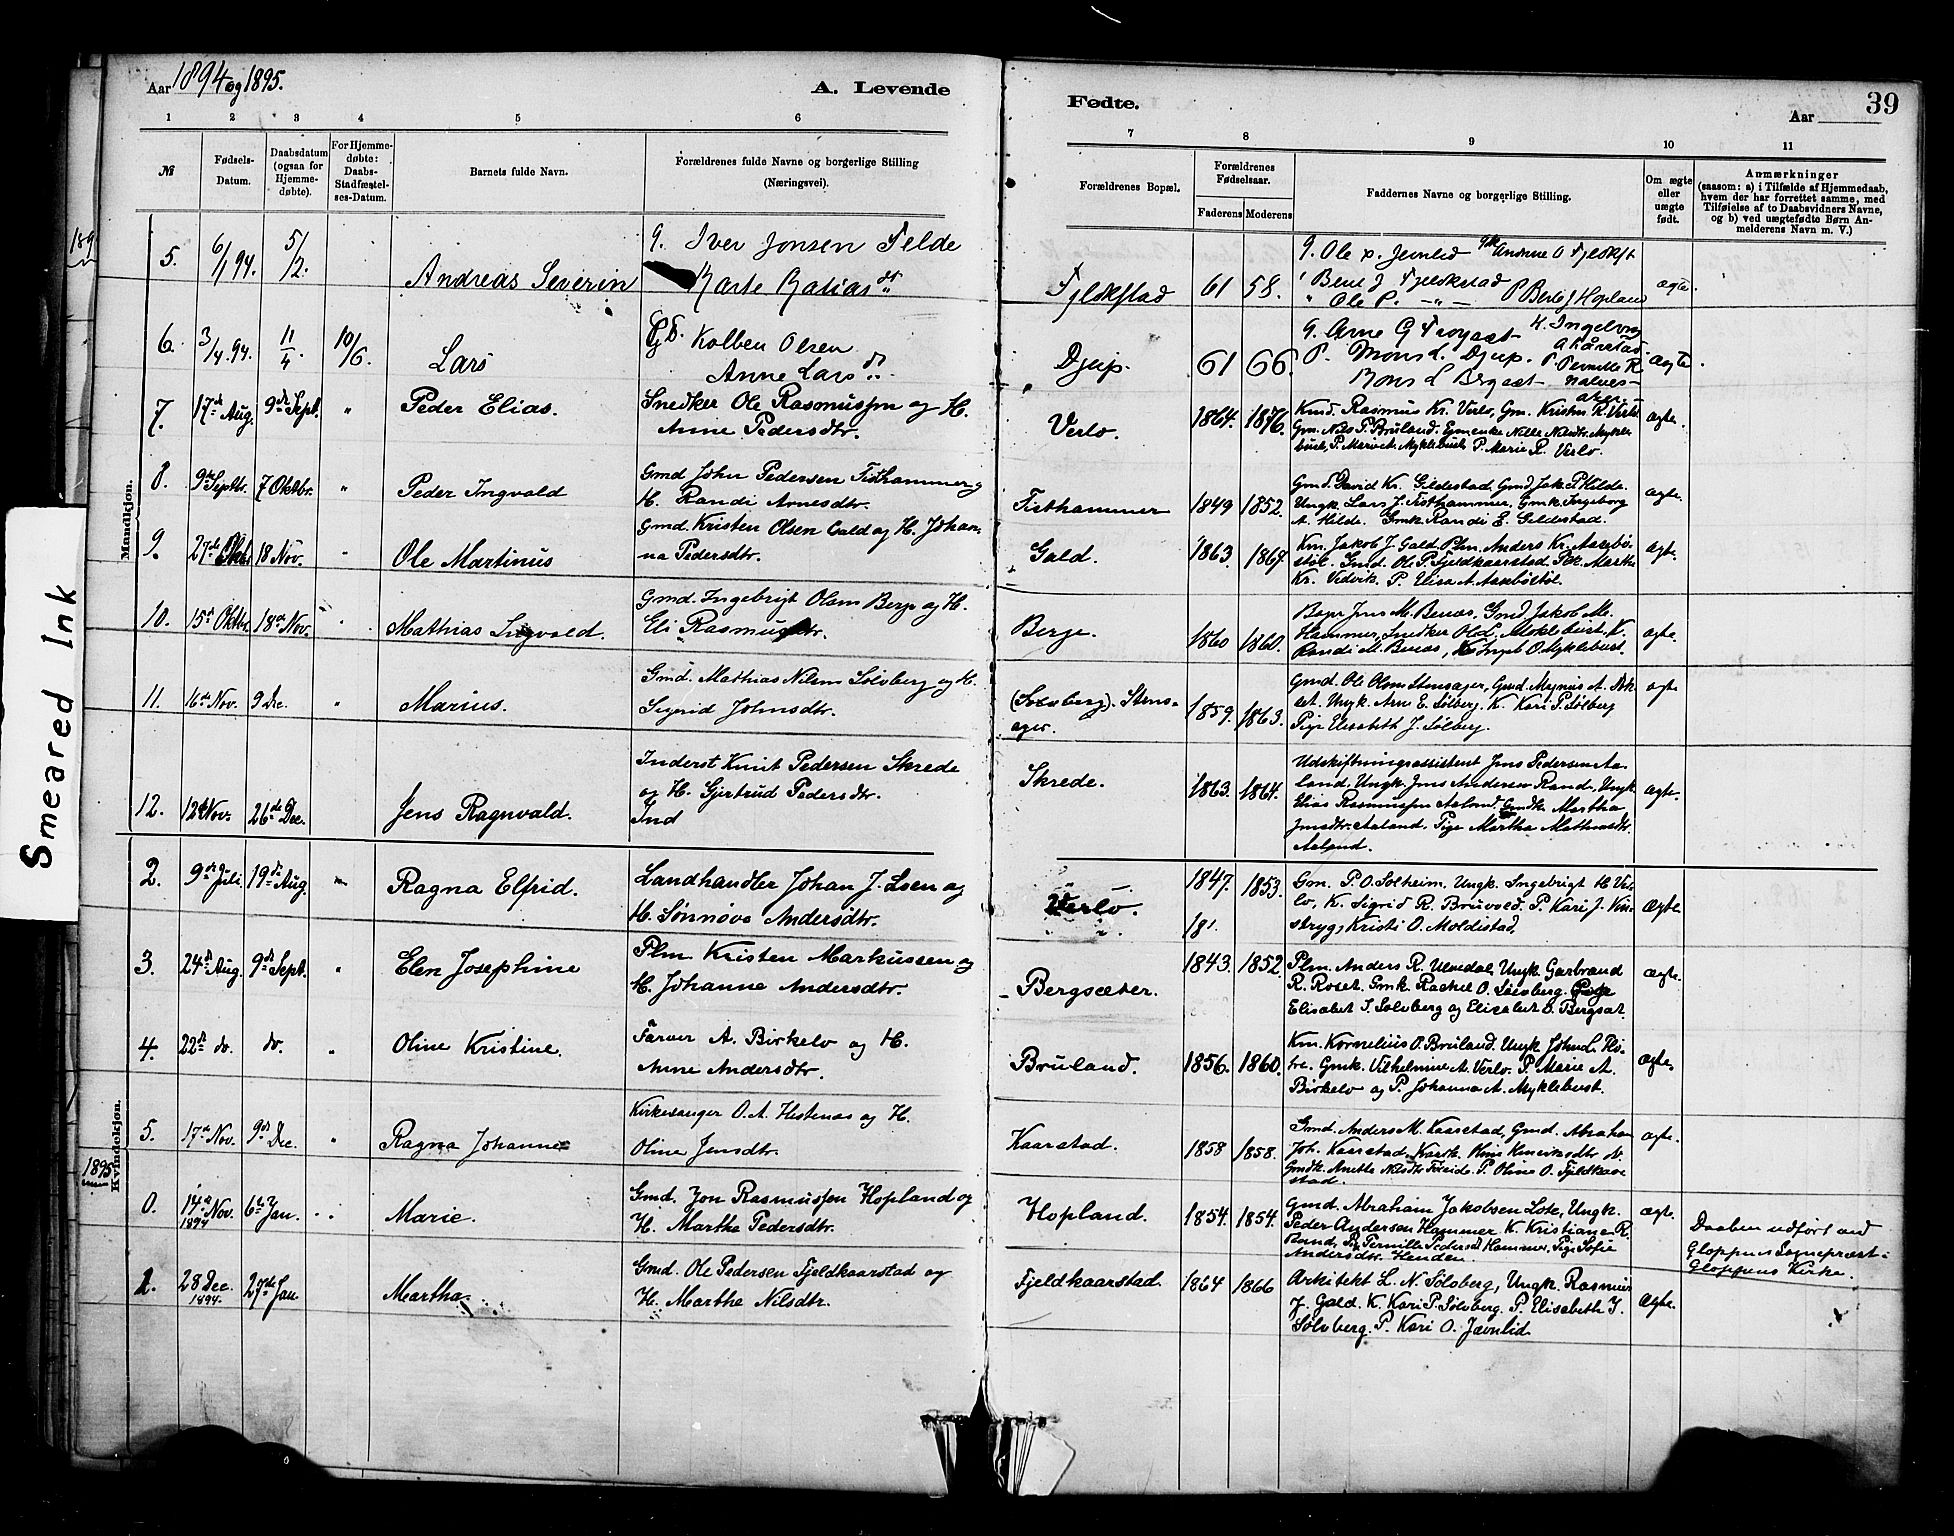 Aar 1894 og 1895.
A. Levende
Fødte.
Aar
39
1 2 3 4 5 6 7 8 9 10 11
№
Fødsels-
Datum.
Daabsdatum
(ogsaa for
Hjemme-
døbte).
For Hjemme-
døbte:
Daabs-
Stadfæstel-
ses-Datum.
Barnets fulde Navn.
Forældrenes fulde Navne og borgerlige Stilling
(Næringsvei).
Forældrenes Bopæl.
Forældrenes
Fødselsaar.
Faderens Moderens
Faddernes Navne og borgerlige Stilling.
Om ægte
eller
uægte
født.
Anmærkninger
(saasom: a) i Tilfælde af Hjemmedaab,
hvem der har forrettet samme, med
Tilføielse af to Daabsvidners Navne,
og b) ved uægtefødte Børn An-
melderens Navn m. V.)
Smeared Ink
Mandkjøn.
5. 6/1 94. 5/2. Andreas Severin
G. Iver Jonsen Felde
61 58. ægte
6. 3/4 94. 11/4 10/6. Lars
Kolben Olsen
Anne Larsdt.
Djup. 61 66. ægte.
7. 17de Aug. 9de Sept. " Peder Elias.
Snedker Ole Rasmussen og H.
Anne Pedersdtr.
Verlo. 1864. 1876.
Knud. Rasmus Kr. Verlo, Gm. Kristen R. Verlo
ægte.
8. 9de Septbr. 7 Oktbr. " Peder Ingvald
Gmd John Pedersen Fisthammer og
H. Randi Arnesdtr.
Fisthammer 1849 1852.
Gmd. David Kr. Gildestad, Gmd Jak. P. Hilde.
Ungk. Lars J. Fisthammer, Gmk. Ingeborg
A. Hilde. Gmk. Randi E. Gildestad.
ægte.
9. 27de 18 Nov. " Ole Martinus
Gmd. Kristen Olsen Gald og H. Johan-
na Pedersdtr.
Gald. 1863. 1867.
Km. Jakob J. Gald Plm. Anders Kr. Aasebø-
støl. Gmd. Ole P. Fjeldkaarstad. Pk. Marthe
Kr. Vedvik. P. Elisa A. Aasebøstøl.
ægte.
10. 15de Oktbr. 18de Nov. " Mathias Ingvald.
Gmd. Ingebrigt Olsen Berge og H.
Eli Rasmusdtr.
Berge. 1860 1860.
Hammer, Snedker Ole L. Myklebust. K.
Randi M. Benæs, Ingeb. O. Myklebust.
ægte.
11. 16de Nov. 9 Dec. " Marius.
Gmd. Mathias Nilsen Sølvberg og H.
Sigrid Johnsdtr.
(Sølvberg). Stens-
ager. 1859. 1863.
Gmd. Ole Olsen Stensager, Gmd. Magnus A.
Ungk. Arne E. Sølberg, K. Kari P. Sølberg
Pige Elisabeth J. Sølberg.
ægte
12. 12te Nov. 26de Dec. Jens Ragnvald.
Inderst Knut Pedersen Skrede
og H. Gjertrud Pedersdtr.
Ind
Skrede. 1863. 1864.
Udskiftningsassistent Jens Pedersen Aa-
land, Ungk. Jens Andersen Rand, Ungk.
Elias Rasmussen Aaland, Gmdk. Martha
Jensdtr. Aaland. Pige Martha Mathiasdtr.
Aaland.
ægte.
Kvindekjøn.
2. 9de Juli. 19de Aug. Ragna Elfrid.
Landhandler Johan J. Loen og
H. Sønnøve Andersdtr.
Verlo. 1847. 1853.
18
Gm. P. O. Solheim, Ungk. Ingebrigt H Ver-
lo, K. Sigrid R. Bruvold. P. Kari J.
Kristi O. Moldestad.
Ægte.
3. 24de Aug. 9de Sept. " Elen Josephine
Plm Kristen Markussen og
H. Johanne Andersdtr.
Bergsæter. 1843. 1852.
Plm. Anders R. Ulvedal, Ungk. Garbrand
R. Roset. Gmk. Rachel O. Sølvberg. Pige
Elisabet J. Sølvberg og Elisabet O. Bergsæt.
ægte.
4. 22de do. do. " Oline Kristine.
Farver A. Birkelv og H.
Anne Andersdtr.
Bruland. 1856. 1860.
Km. Kornelius O. Bruland. Ungk. John L. Flø-
tre. Gmk. Vilhelmine A. Verlo. P. Marie A.
Birkelv og P. Johanna A. Myklebust.
Ægte.
5. 17de Nov. 9de Dec. " Ragna Johanne
Kirkesanger O. A. Hestenæs og H.
Oline Jensdtr.
Kaarstad. 1858 1858.
Gmd. Anders M. Kaarstad, Gmd. Abraham
Joh. Kaarstad,
P. Oline O. Fjeldkaar
stad.
ægte.
1895
0. 14de Nov. 1894 6te Jan. Marie.
Gmd. Jon Rasmussen Hopland og
H. Marthe Pedersdtr.
Hopland. 1854. 1854.
Gmd. Abraham Jakobsen Lote, Ungk.
Peder Andersen Hammer. K. Kristiane R.
Pernille Pedersd. Hammer, Pige Sofie
Andersdtr. Henden.
ægte.
Daaben udført ved
Gloppens Sognepræst i
Gloppens Kirke.
1. 28 Dec. 1894. 27de Jan. Martha.
Gmd. Ole Pedersen Fjeldkaarstad og
H. Marthe Nilsdtr.
Fjeldkaarstad. 1864 1866
Arkitekt L. N. Sølvberg, Ungk. Rasmus
J. Gald. K. Kari P. Sølvberg. P. Elisabeth J.
Sølvberg. P. Kari O. Jævnlid.
Ægte.